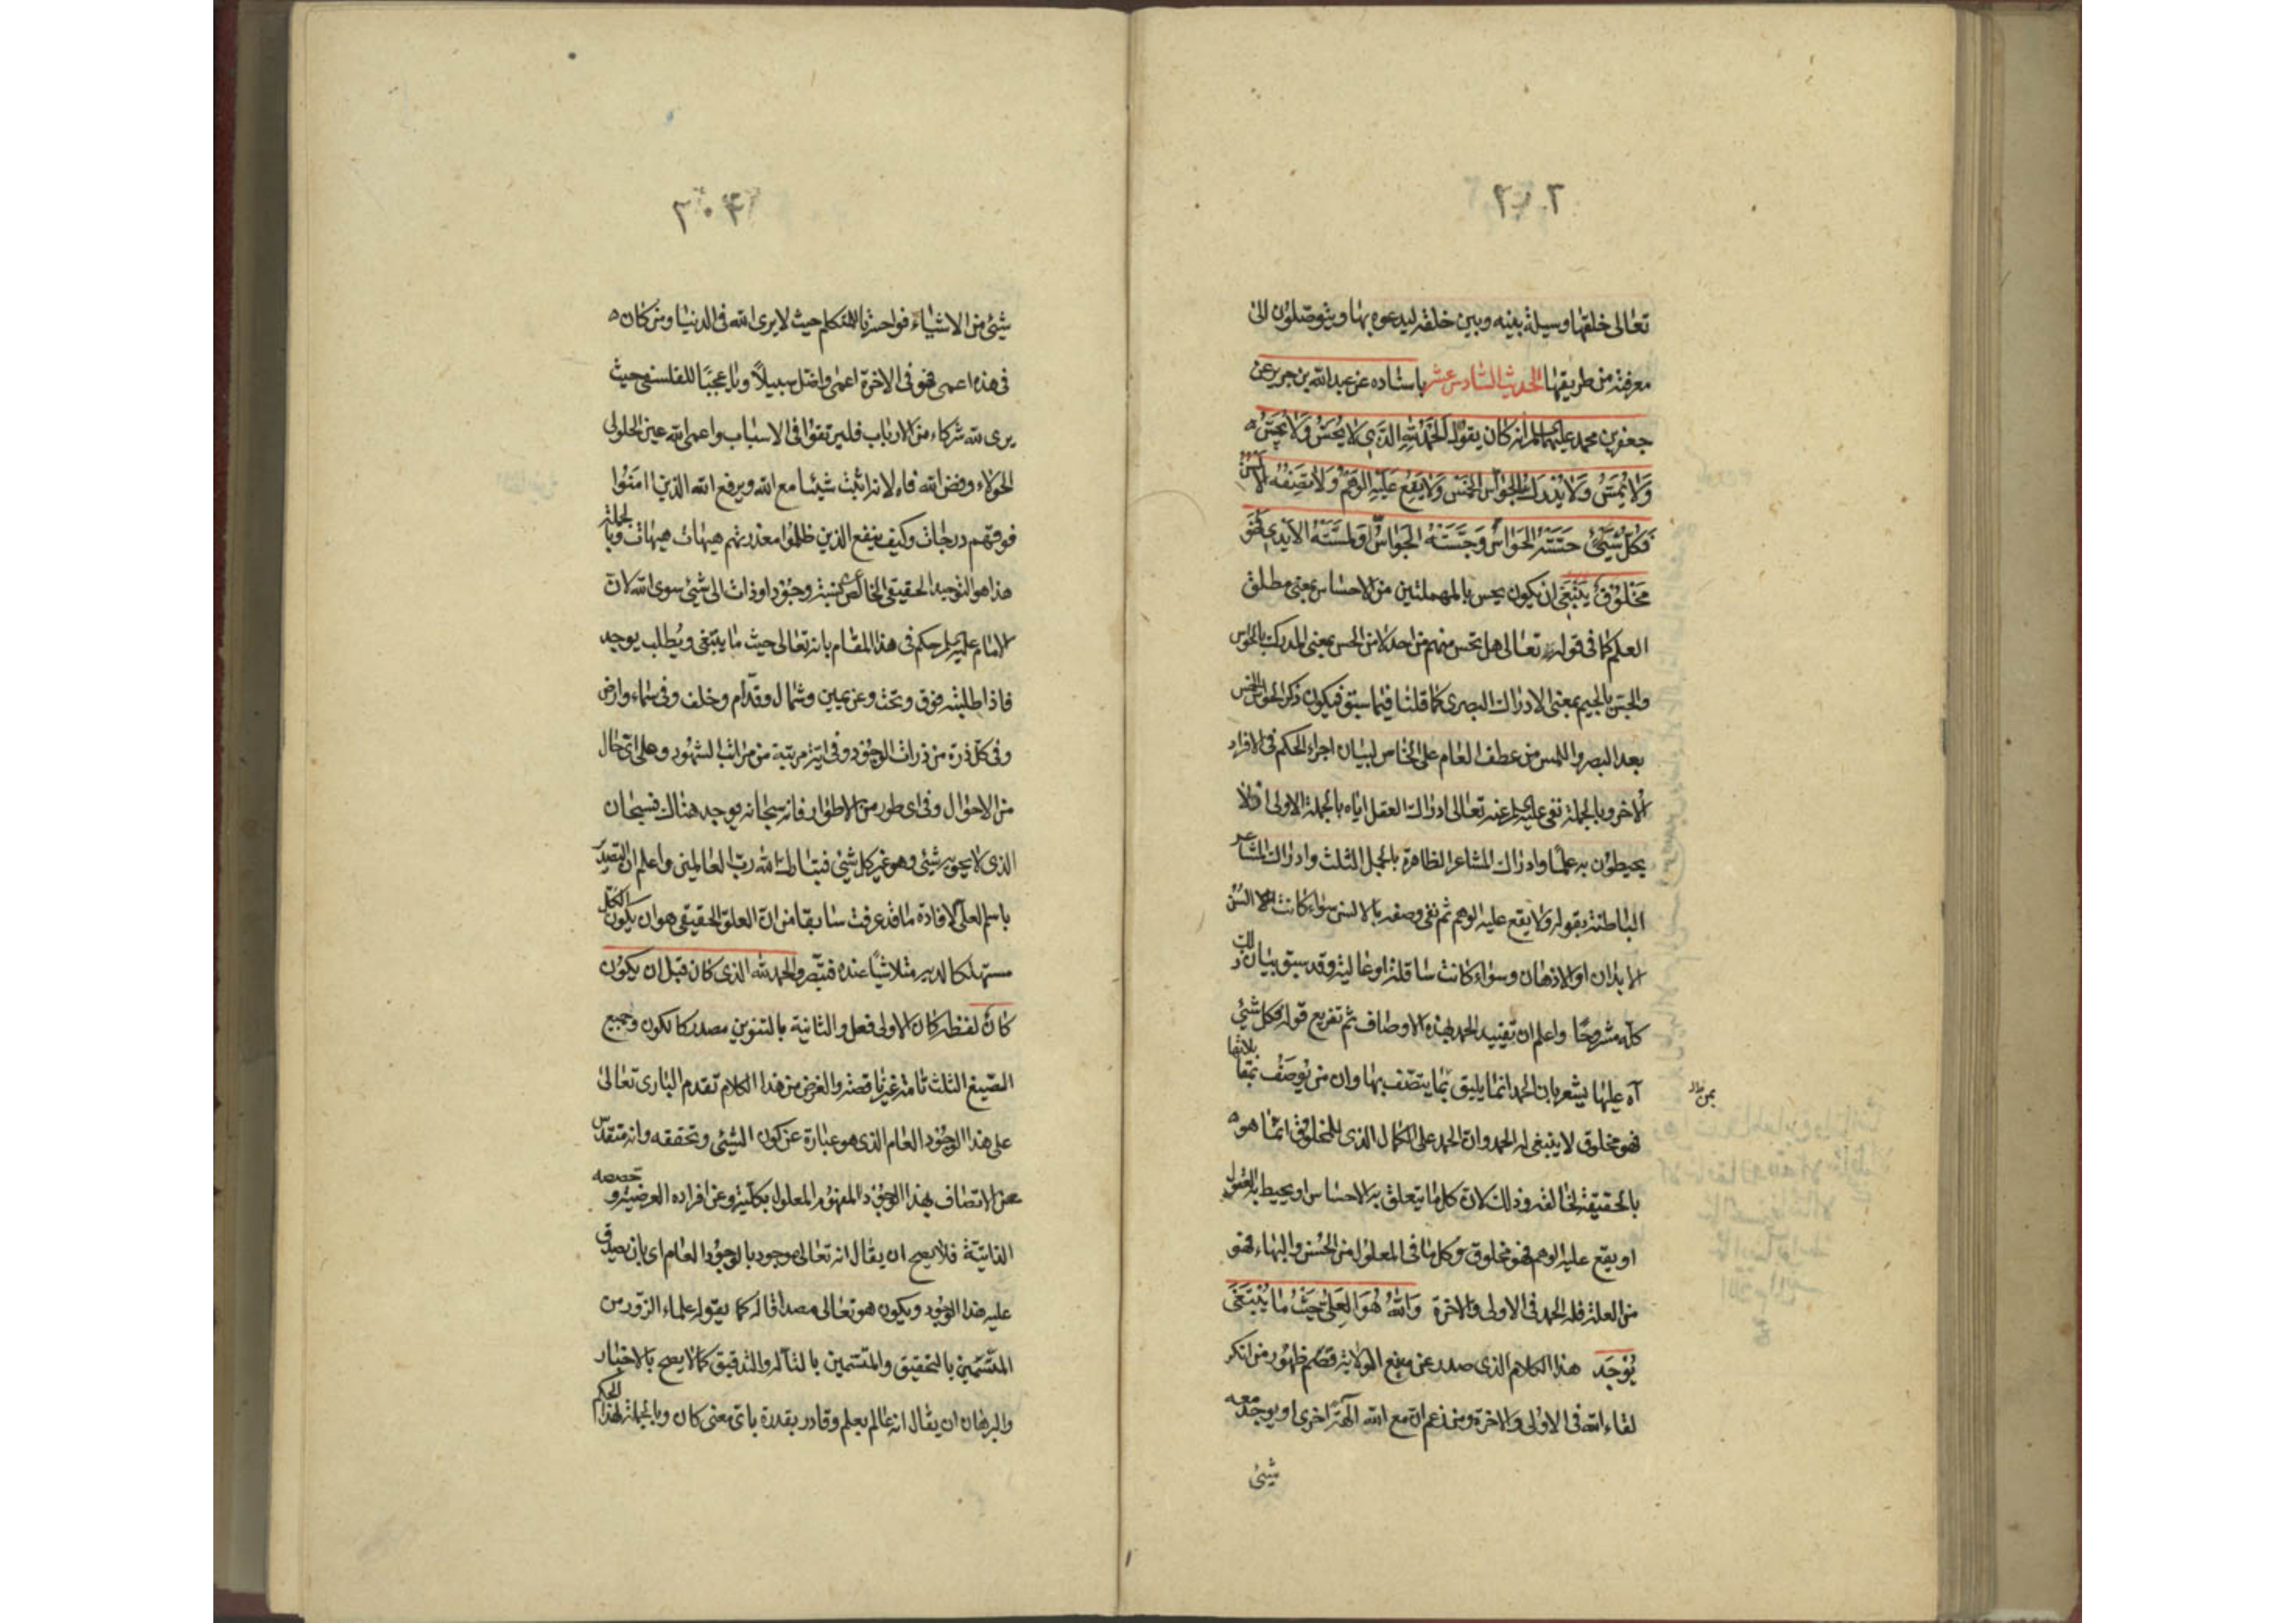 ٢٠٢
تعالى خلقها وسيلة بينه وبين خلقه ليدعوه بها ويتوصلون الى
معرفته من طريقها الحديث السادس عشر باسناده عن عبد الله بن جرير عن
جعفر بن محمد عليهما السلم انه كان يقول الحمد لله الذي لا يُحَسّ ولا يُجَسّ
ولا يُمَسّ ولا يُدرك بالحواس الخمس ولا يقع عليه الوهم ولا تصفه الالسن
فكلّ شيئ حسّته الحواس وجسّته الجواسّ ولمسته الايدي فهو
مخلوق ينبغي ان يكون يحس بالمهملتين من الاحساس بمعنى مطلق
العلم كما في قوله تعالى هل تحس منهم من احد لا من الحس بمعنى المدرك بالحواس
والجس بالجيم بمعنى الادراك البصري كما قلنا فيما سبق فيكون ذكر الحواس الخمس
بعد البصر واللمس من عطف العام على الخاص لبيان اجراء الحكم في الافراد
الاخر وبالجملة نفى عليه السلم عنه تعالى ادراك العقل اياه بالجملة الاولى اذ لا
يحيطون به علما وادراك المشاعر الظاهرة بالجمل الثلث وادراك المشاعر
الباطنة بقوله ولا يقع عليه الوهم ثم نفى وصفه بالالسن سواء كانت السن
الابدان او الاذهان وسواء كانت سافلة او عالية وقد سبق بيان ذلك
كله مشروحا واعلم ان تقييد الحمد بهذه الاوصاف ثم تفريع قوله فكل شيئ
آه عليها يشعر بان الحمد انما يليق بما يتصف بها وان من يوصف بمقابلاتها
بمن ظ
فهو مخلوق لا ينبغي له الحمد وان الحمد على الكمال الذي للمخلوق انما هو
بالحقيقة لخالقه وذلك لان كل ما يتعلق به الاحساس او يحيط به العقول
او يقع عليه الوهم فهو مخلوق وكل ما في المعلول من الحسن والبهاء فهو
من العلة فله الحمد في الاولى والاخرة والله هو العلي حيث ما يُنبَغى
يُوجَد هذا الكلام الذي صدر عن منبع الولاية قصم ظهور من انكر
لقاء الله في الاولى والاخرة ومن زعم ان مع الله آلهة اخرى او يوجد معه
شيئ
٢٠٤
شيئ من الاشياء فواحسرتا للمتكلم حيث لا يرى الله في الدنيا ومن كان
في هذه اعمى فهو في الاخرة اعمى واضل سبيلا ويا عجبا للفلسفي حيث
يرى لله شركاء من الارباب فليرتقوا في الاسباب واعمى الله عين الحلولي
الحولاء وفض الله فاه لانه اثبت شيئا مع الله ويرفع الله الذين امنوا
فوقهم درجات وكيف ينفع الذين ظلموا معذرتهم هيهات هيهات وبالجملة
هذا هو التوحيد الحقيقي الخالص عن نسبة وجود او ذات الى شيئ سوى الله لان
الامام عليه السلم حكم في هذا المقام بانه تعالى حيث ما يبتغى ويُطلب يوجد
فاذا طلبته فوق وتحت وعن يمين وشمال وقدّام وخلف وفي سماء وارض
وفي كل ذرة من ذرات الوجود وفي اية مرتبة من مراتب الشهود وعلى اي حال
من الاحوال وفي اي طور من الاطوار فانه سبحانه يوجد هناك فسبحان
الذي لا يحويه شيئ وهو غير كل شيئ فتبارك الله رب العالمين واعلم ان التصدير
باسم العلي لافادة ما قد عرفت سابقا من ان العلو الحقيقي هو ان يكون الكل
مستهلكا لديه متلاشيا عنده فتبصّر والحمد لله الذي كان قبل ان يكون
كانَ لفظة كان الاولى فعل والثانية بالتنوين مصدر كالكون وجميع
الصيغ الثلث تامة غير ناقصة والغرض من هذا الكلام تقدم الباري تعالى
على هذا الوجود العام الذي هو عبارة عن كون الشيئ وتحققه وانه متقدس
عن الاتصاف بهذا الوجود المفهوم المعلول بكليته وعن افراده العرضية وحصصه
الذاتية فلا يصح ان يقال انه تعالى موجود بالوجود العام اي بان يصدق
عليه هذا الوجود ويكون هو تعالى مصداقا له كما يقوله علماء الزور من
المتسمين بالتحقيق والمتسمين بالتأله والتدقيق كما لا يصح بالاخبار
والبرهان ان يقال انه عالم بعلم وقادر بقدرة باي معنى كان وبالجملة لهذا الحكم